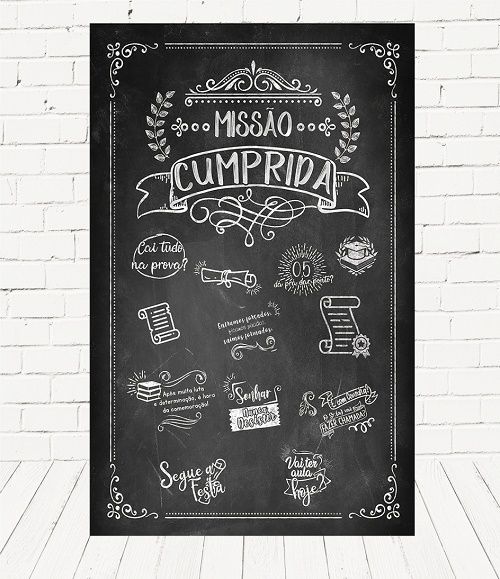 MISSÃO
CUMPRIDA
Cai tudo
na prova?
0,5
dá pra dar ponto?
Entramos forçados,
saímos formados.
Após muita luta
determinação, é hora
da comemoração!
Sonhar
Nunca
Desistir
FAZER CHAMADA!
Segue a
Festa
Vai ter
aula
hoje?